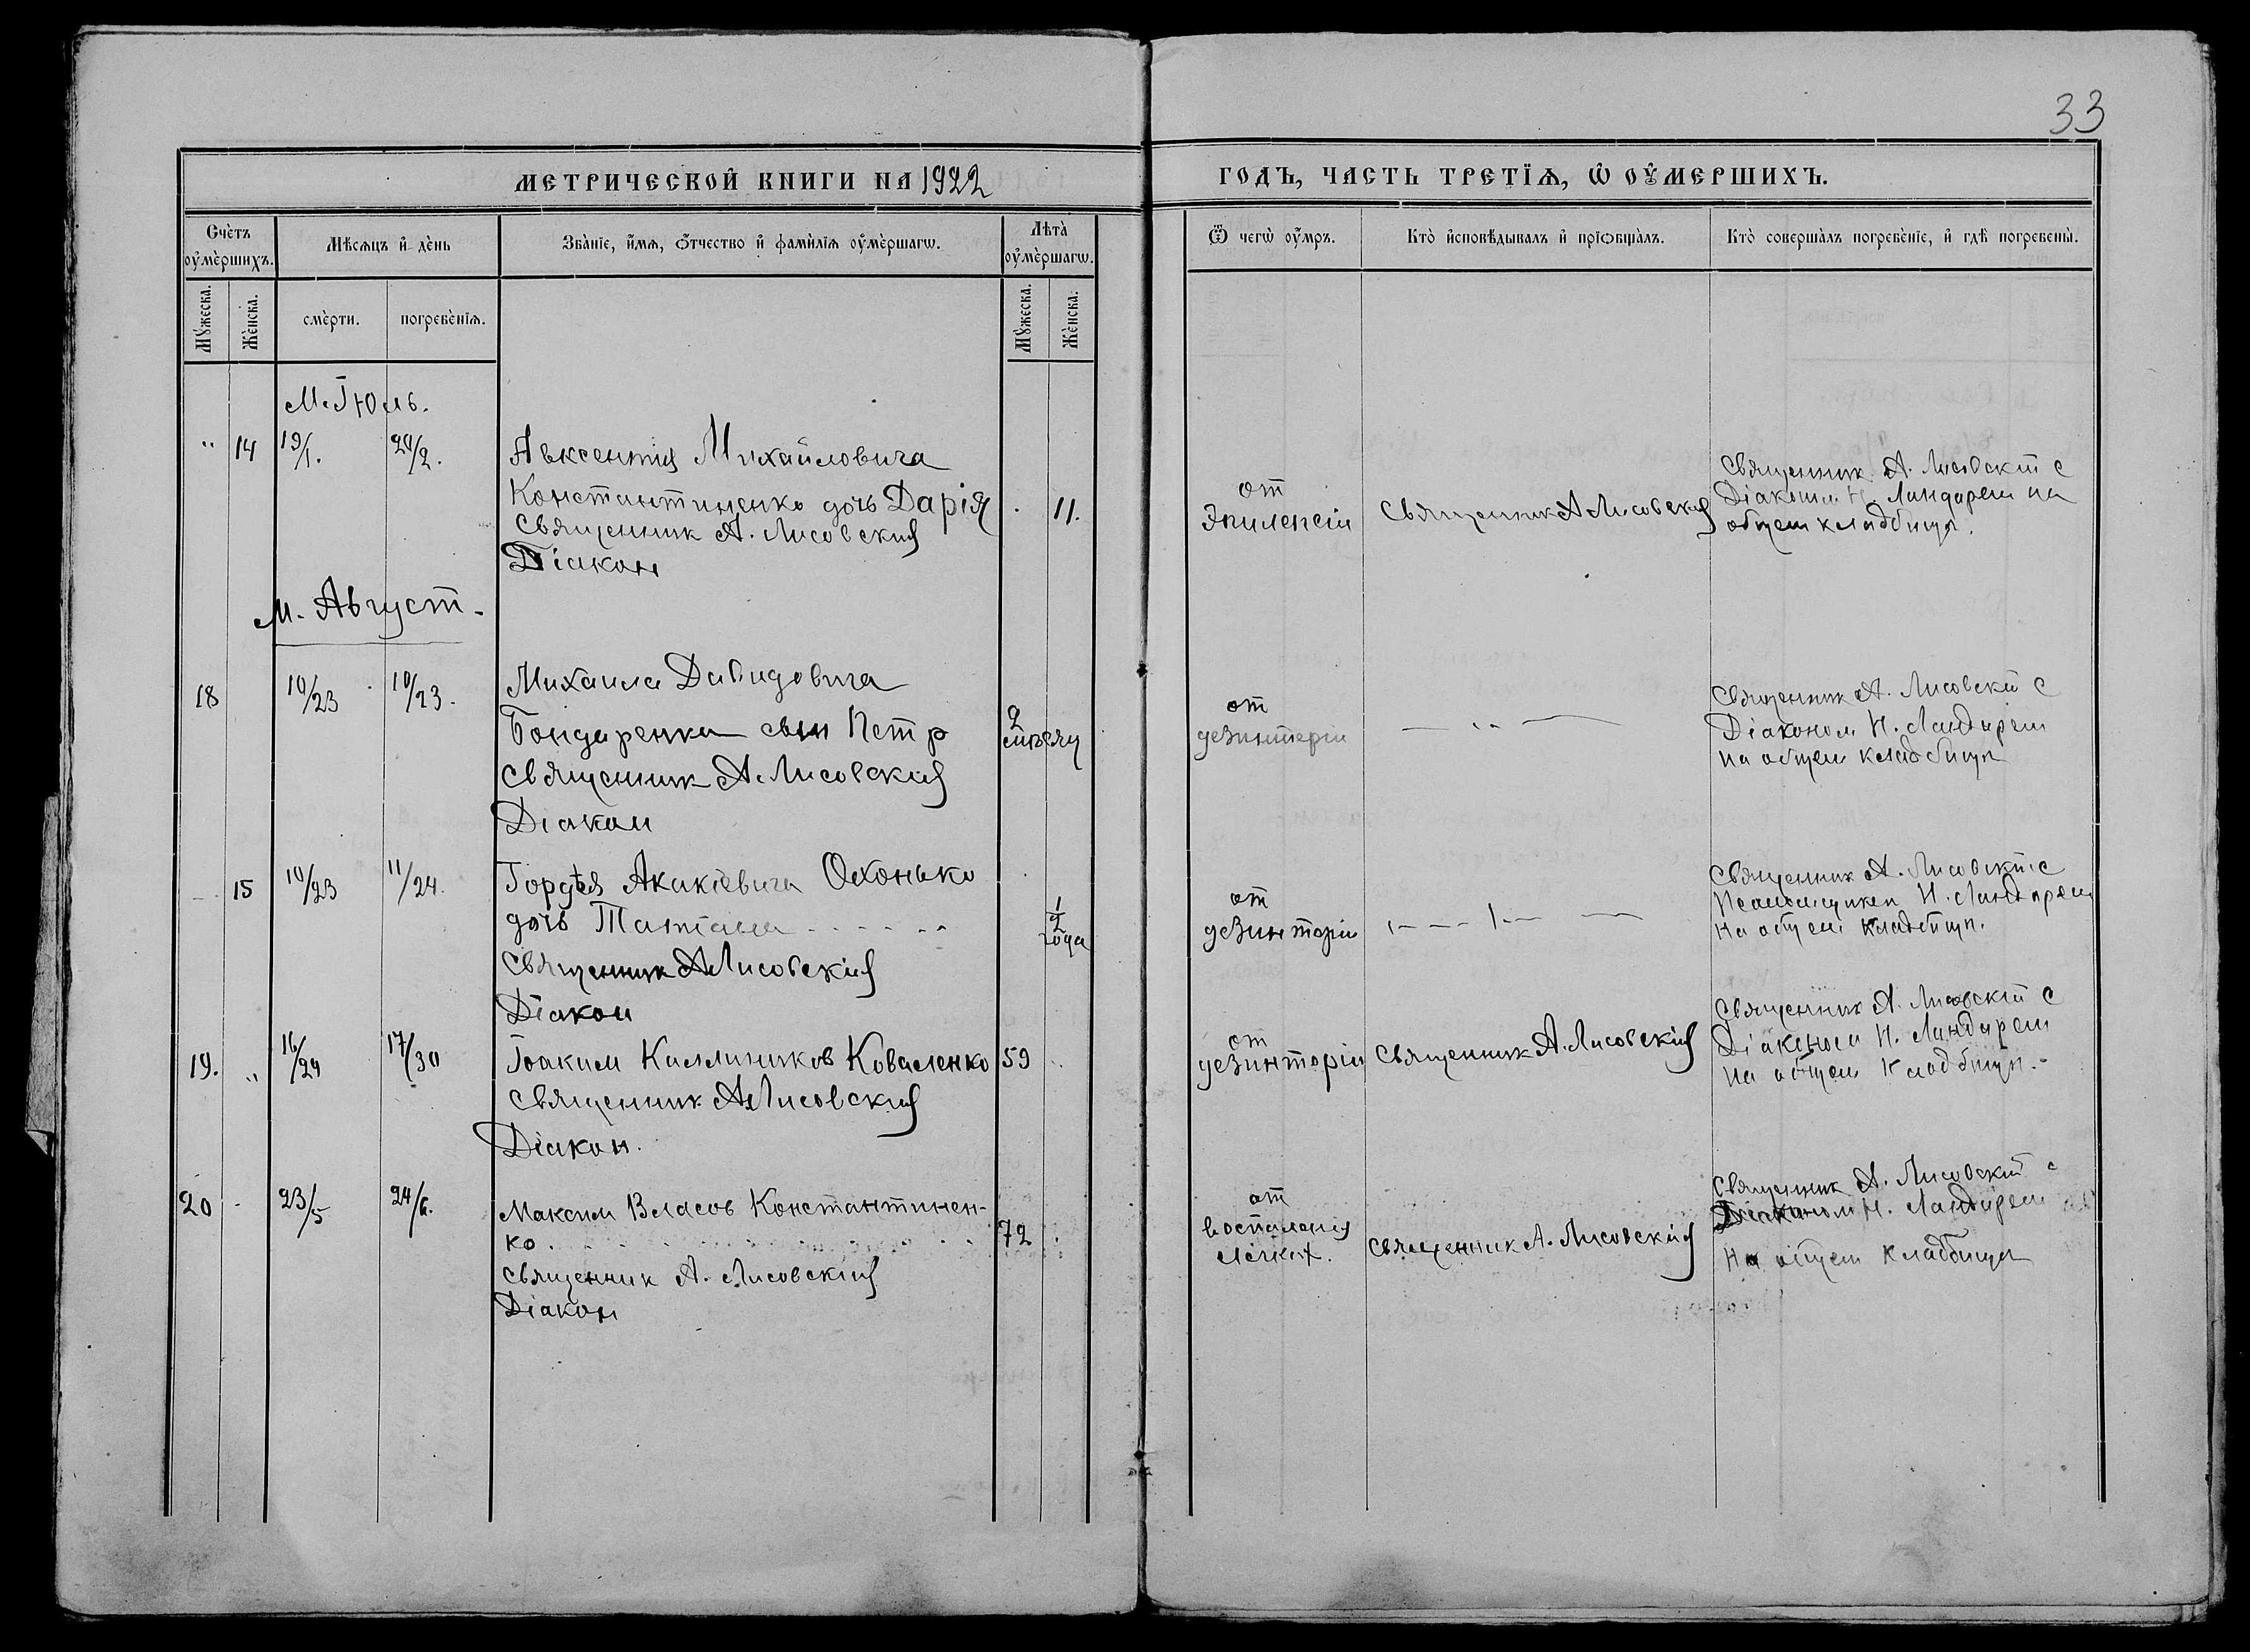 33
МЕТРИЧЕСКОЙ КНИГИ НА 1922
ГОДЪ, ЧАСТЬ ТРЕТЇѦ, Ѡ ОУМЕРШИХЪ.
Счетъ оумершихъ.
Мѣсѧцъ и день
Званїе, имѧ, отчество и фамилїѧ оумершагѡ.
Лѣта оумершагѡ.
Ѿ чегѡ оумръ.
Кто исповѣдывалъ и прїобщалъ.
Кто совершалъ погребенїе, и гдѣ погребены.
Мужеска.
Женска.
смерти.
погребенїѧ.
Мужеска.
Женска.
М. Іюль.
" 14 19/1. 20/2.
Авксентія Михайловича
Константиненко дочь Дарія 11.
Священник А. Лисовскій
Діакон
от
Эпилепсіи
Священник А Лисовскій
Священник А. Лисовскій с
Діаконом Н. Ландарем на
общем кладбищѣ.
М. Август.
18 10/23 10/23.
Михаила Давидовича
Бондаренка сын Петр 2
Священник А. Лисовскій
Діакон
от
дезинтеріи
— " —
Священник А. Лисовскій с
Діаконом Н. Ландарем
на общем кладбищѣ
15 10/23 11/24.
Гордѣя Акакіевича Охонько
дочь Татіана 1/2
года
Священник А Лисовскій
Діакон
от
дезинторіи
Священник А. Лисовскій с
Псаломщикем Н. Ландарем
на общем кладбищѣ.
19. " 16/29 17/30
Іоаким Каллиников Коваленко 59
Священник А Лисовскій
Діакон.
от
дезинторіи
Священник А. Лисовскій
Священник А. Лисовскій с
Діаконом Н. Ландарем
на общем кладбищѣ.
20 - 23/5 24/6.
Максим Власов Константинен-
ко. 72
Священник А. Лисовскій
Діакон
от
воспаленія
легких.
Священник А. Лисовскій
Священник А. Лисовскій с
Діаконом Н. Ландарем
на общем кладбищѣ